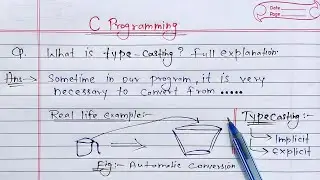 C Programming
Date
Page
Q. What is type-casting? full explanation.
Ans → Sometime in our program, it is very
necessary to convert from .....
Real life example:-
Typecasting:-
→ Implicit
→ explicit
Fig:- Automatic conversion